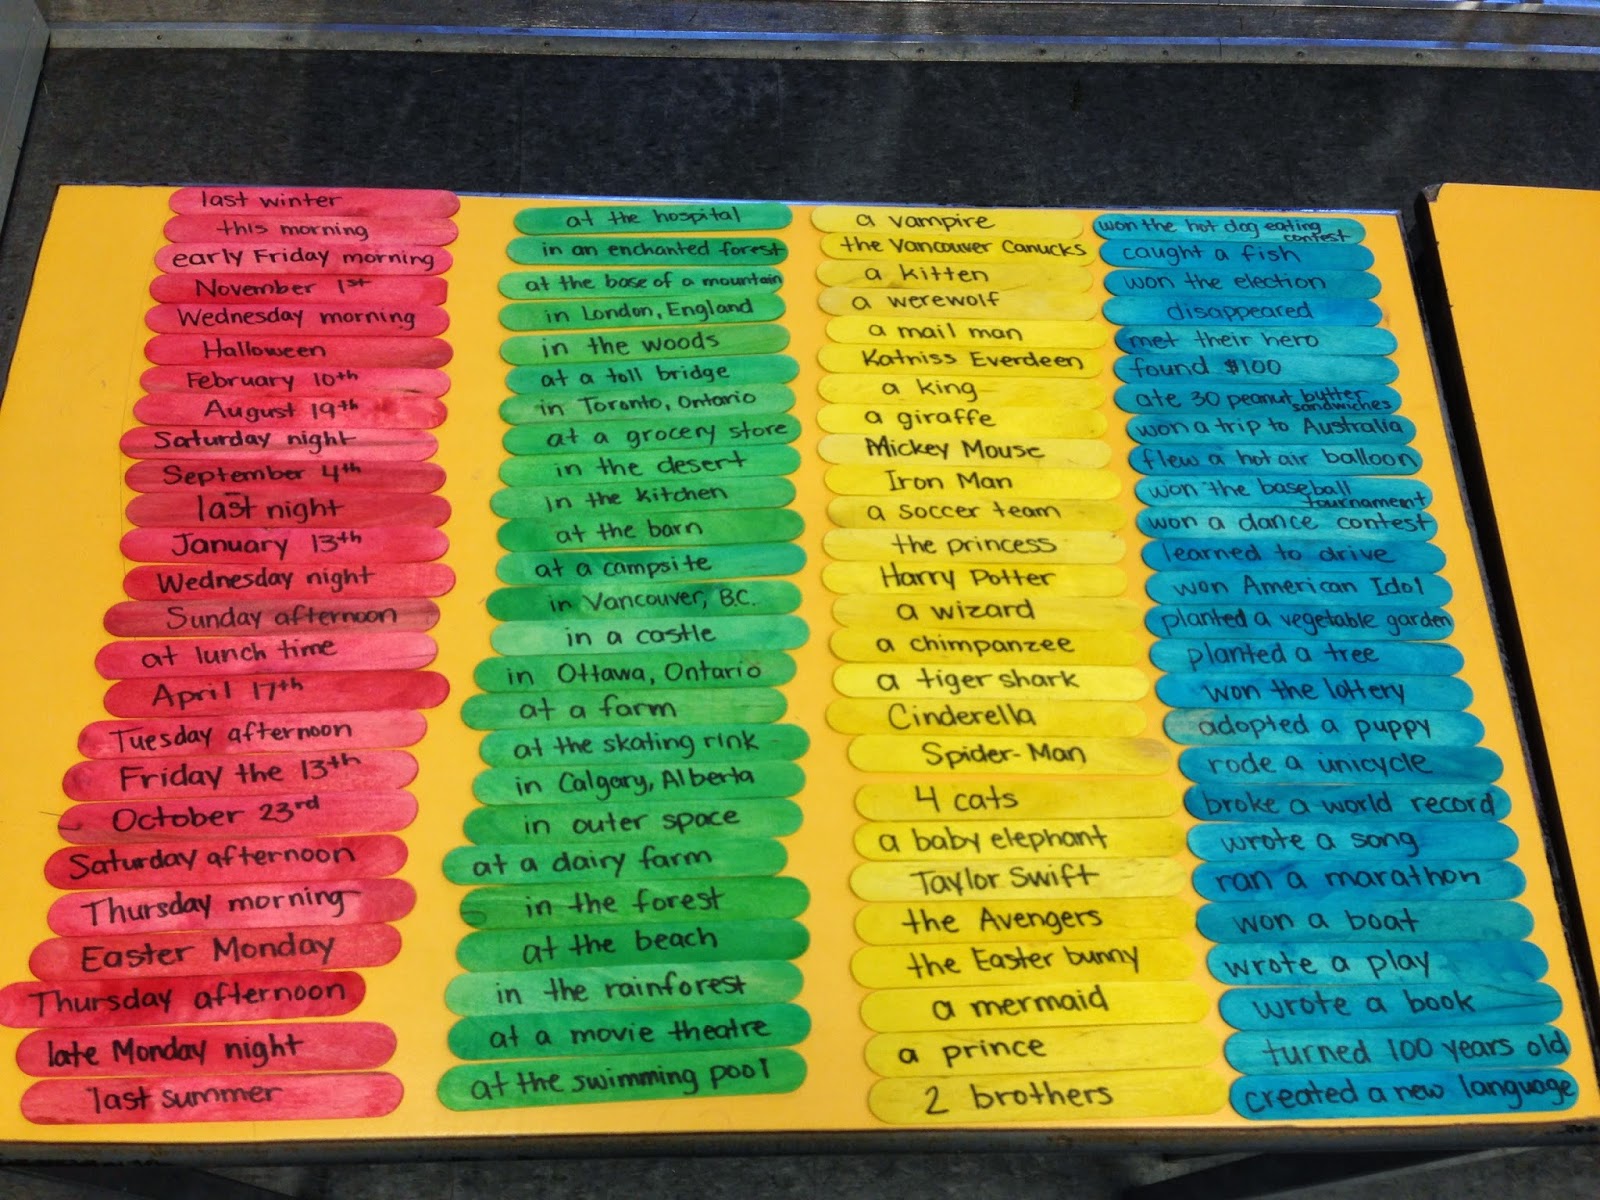 last winter
this morning
early Friday morning
November 1st
Wednesday morning
Halloween
February 10th
August 19th
Saturday night
September 4th
last night
January 13th
Wednesday night
Sunday afternoon
at lunch time
April 17th
Tuesday afternoon
Friday the 13th
October 23rd
Saturday afternoon
Thursday morning
Easter Monday
Thursday afternoon
late Monday night
last summer
at the hospital
in an enchanted forest
at the base of a mountain
in London, England
in the woods
at a toll bridge
in Toronto, Ontario
at a grocery store
in the desert
in the kitchen
at the barn
at a campsite
in Vancouver, B.C.
in a castle
in Ottawa, Ontario
at a farm
at the skating rink
in Calgary, Alberta
in outer space
at a dairy farm
in the forest
at the beach
in the rainforest
at a movie theatre
at the swimming pool
a vampire
the Vancouver Canucks
a kitten
a werewolf
a mail man
Katniss Everdeen
a king
a giraffe
Mickey Mouse
Iron Man
a soccer team
the princess
Harry Potter
a wizard
a chimpanzee
a tiger shark
Cinderella
Spider-Man
4 cats
a baby elephant
Taylor Swift
the Avengers
the Easter bunny
a mermaid
a prince
2 brothers
won the hot dog eating
contest
caught a fish
won the election
disappeared
met their hero
found $100
ate 30 peanut butter
sandwiches
won a trip to Australia
flew a hot air balloon
won the baseball
tournament
won a dance contest
learned to drive
won American Idol
planted a vegetable garden
planted a tree
won the lottery
adopted a puppy
rode a unicycle
broke a world record
wrote a song
ran a marathon
won a boat
wrote a play
wrote a book
turned 100 years old
created a new language